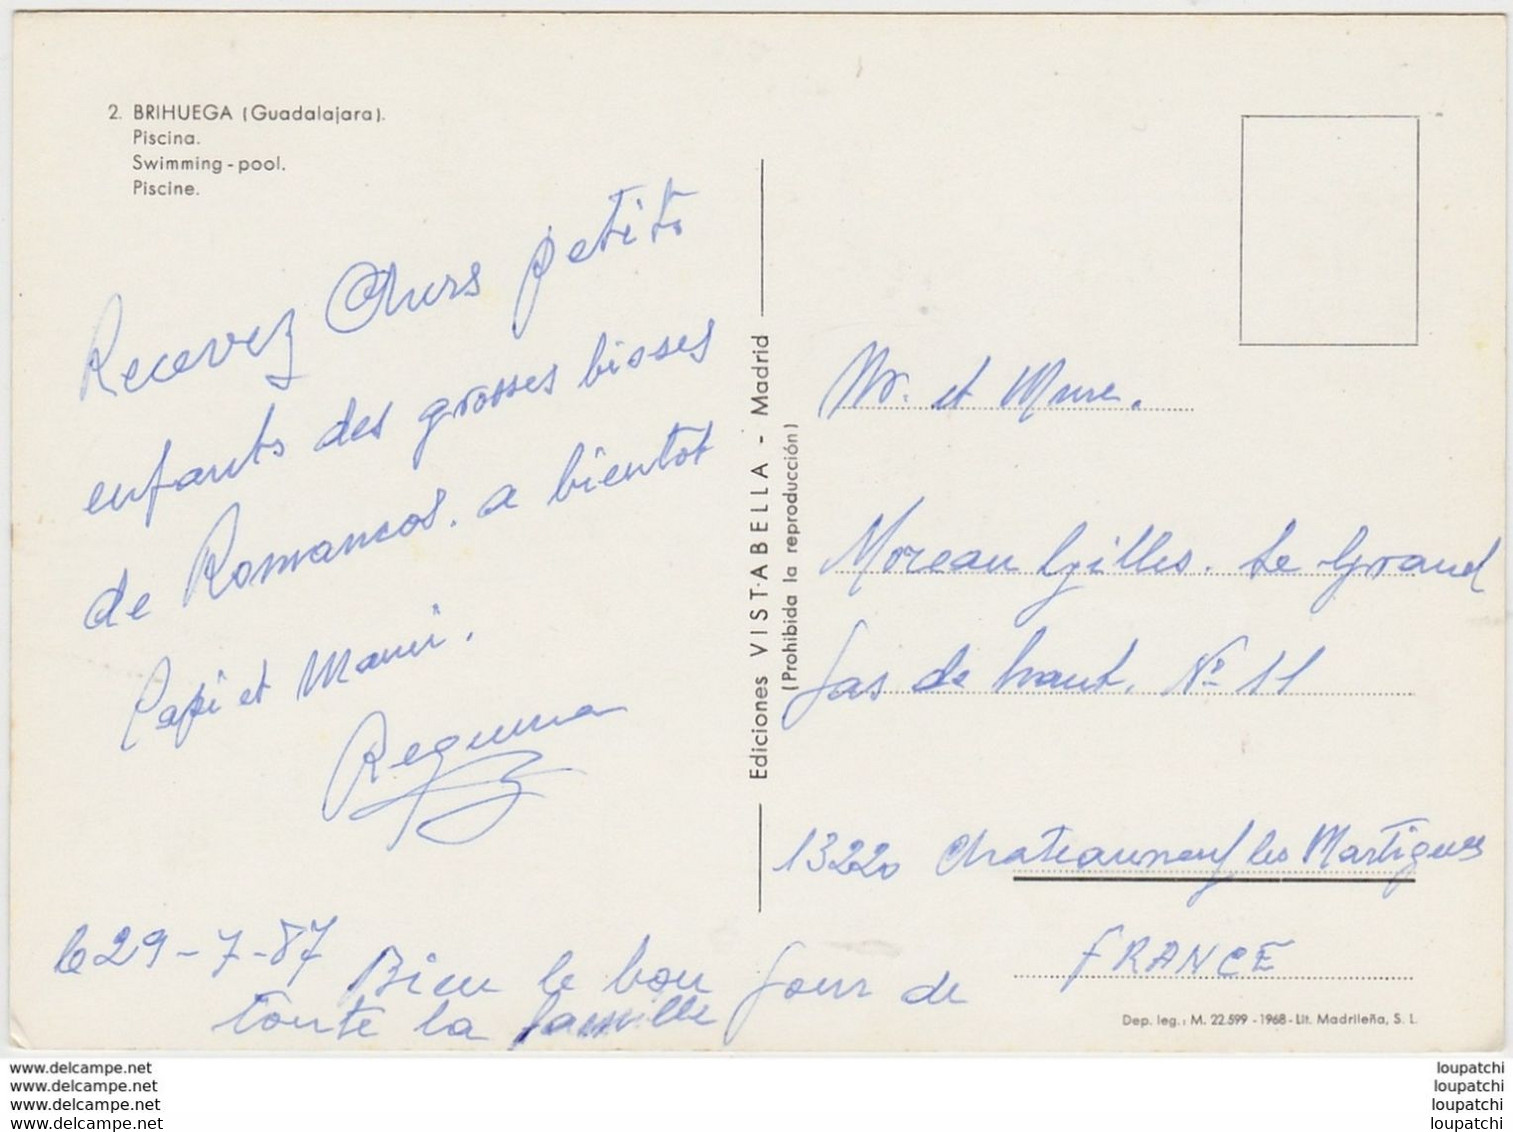 2. BRIHUEGA (Guadalajara).
Piscina.
Swimming-pool.
Piscine.
Recevez Churs petits
enfants des grosses bisses
de Romancos. a bientot
Papi et Mami.
le 29-7-87
Bien le bon Jour de
toute la famille
Ediciones VISTABELLA - Madrid
(Prohibida la reproducción)
Mr. et Mme.
Moreau Gilles. Le Grand
Jas de haut. Nº 11
13220 Chateauneuf les Martigues
FRANCE
Dep. leg.: M. 22.599 - 1968 - Lit. Madrileña, S. L.
www.delcampe.net
www.delcampe.net
www.delcampe.net
www.delcampe.net
loupatchi
loupatchi
loupatchi
loupatchi